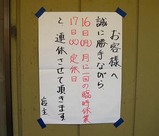 お客様へ
誠に勝手ながら
16日(月)月に一回の臨時休業
17日(火)定休日
と連休させて頂きます
店主